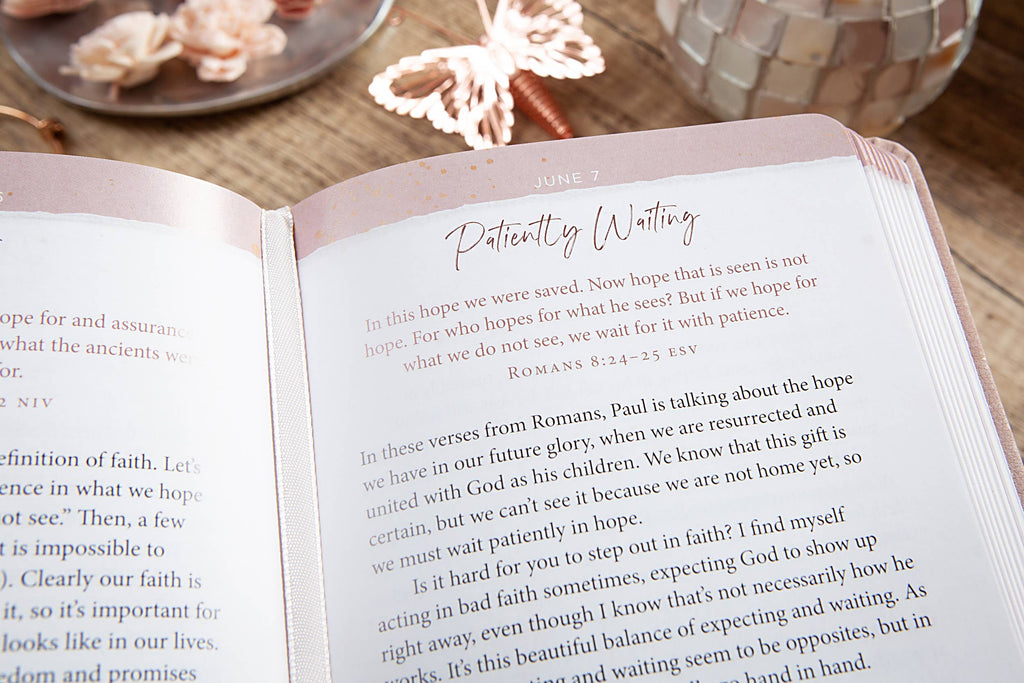 ope for and assurance
what the ancients were
for.
2 NIV
efinition of faith. Let's
ence in what we hope
ot see." Then, a few
t is impossible to
). Clearly our faith is
it, so it's important for
looks like in our lives.
edom and promises
JUNE 7
Patiently Waiting
In this hope we were saved. Now hope that is seen is not
hope. For who hopes for what he sees? But if we hope for
what we do not see, we wait for it with patience.
ROMANS 8:24–25 ESV
In these verses from Romans, Paul is talking about the hope
we have in our future glory, when we are resurrected and
united with God as his children. We know that this gift is
certain, but we can't see it because we are not home yet, so
we must wait patiently in hope.
Is it hard for you to step out in faith? I find myself
acting in bad faith sometimes, expecting God to show up
right away, even though I know that's not necessarily how he
works. It's this beautiful balance of expecting and waiting. As
ting and waiting seem to be opposites, but in
go hand in hand.